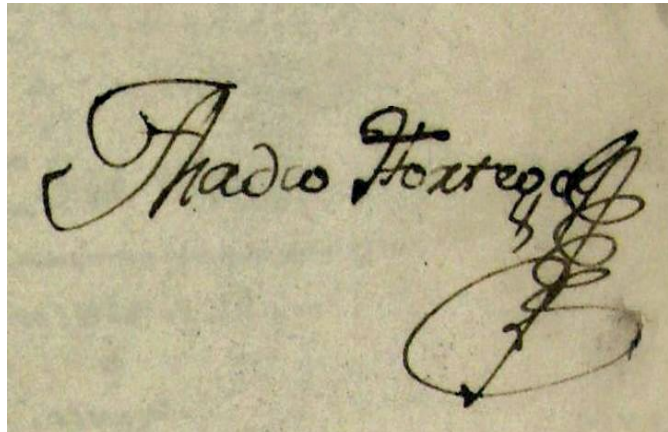 Thadeo Hortega